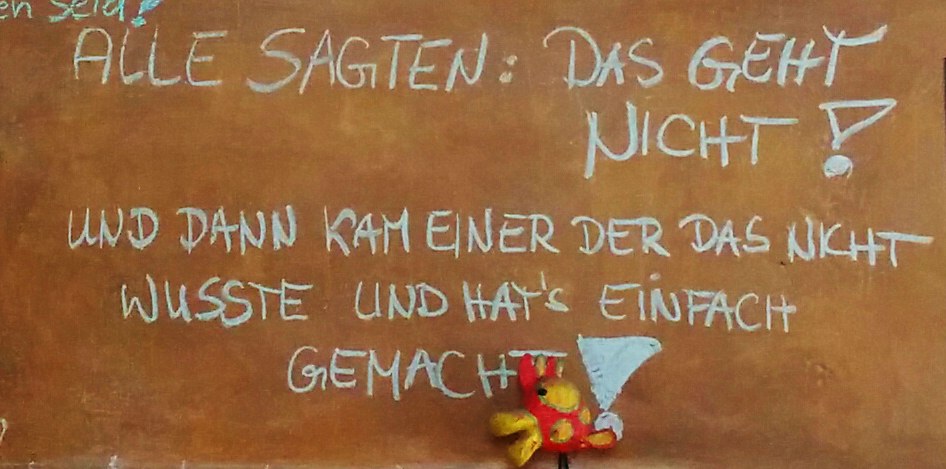 en seid!
ALLE SAGTEN: DAS GEHT
NICHT!
UND DANN KAM EINER DER DAS NICHT
WUSSTE UND HAT'S EINFACH
GEMACHT!